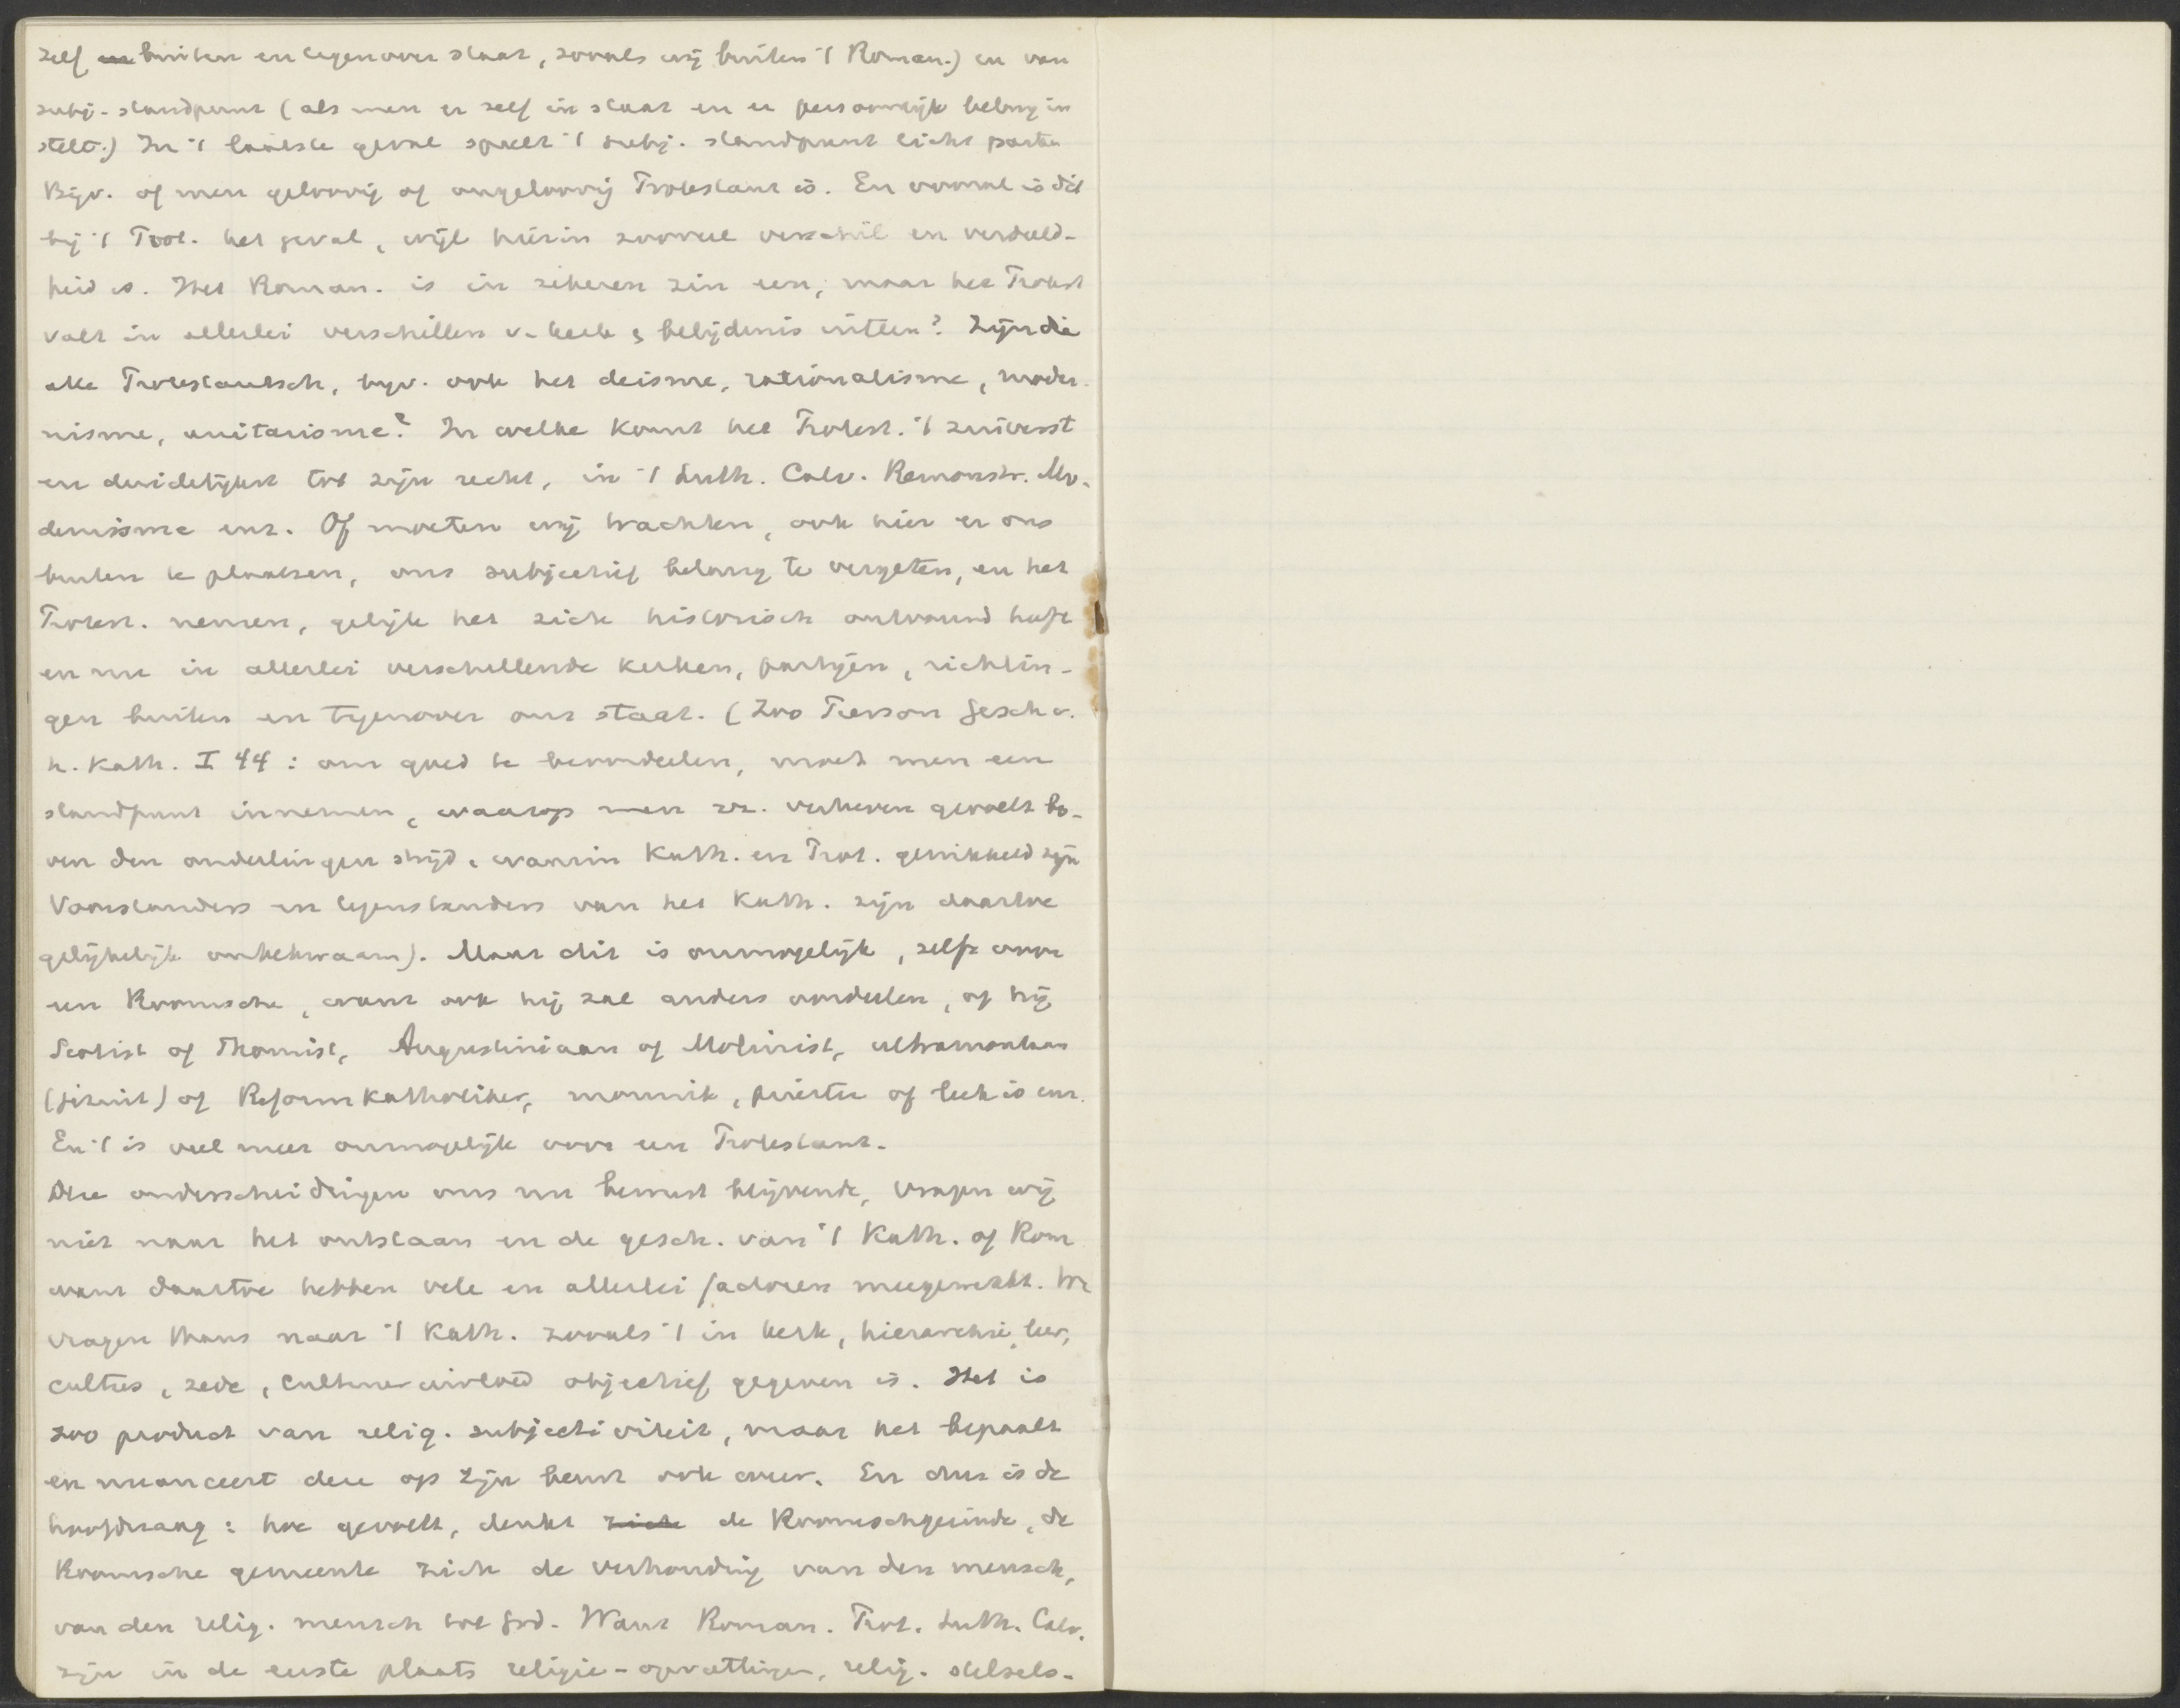 zelf buiten en tegenover staat, zooals wij buiten 't Roman.) en van
subj. standpunt (als men er zelf in staat en er persoonlijk belang in
stelt.) In 't laatste geval speelt 't subj. standpunt licht parten
Bijv. of men geloovig of ongeloovig Protestant is. En vooral is dit
bij 't Prot. het geval, wijl hierin zooveel verschil en verdeeld-
heid is. Het Roman. is in zekeren zin een, maar het Protest
valt in allerlei verschillen v. kerk & belijdenis uiteen? Zijn die
alle Protestantsch, bijv. ook het deisme, rationalisme, moder-
nisme, unitarisme? In welke komt het Protest. 't zuiverst
en duidelijkst tot zijn recht, in 't Luth. Calv. Remonstr. Mo-
dernisme enz. Of moeten wij trachten, ook hier er ons
buiten te plaatsen, ons subjectief belang te vergeten, en het
Protest. nemen, gelijk het zich historisch ontwond heeft
en nu in allerlei verschillende kerken, partijen, richtin-
gen buiten en tegenover ons staat. (Zoo Pierson Gesch v.
h. Kath. I 44: om goed te beoordeelen, moet men een
standpunt innemen, waarop men zz. verheven gevoelt bo-
ven den onderlingen strijd, waarin Kath. en Prot. gewikkeld zijn
Voorstanders en tegenstanders van het Kath. zijn daartoe
gelijkelijk onbekwaam). Maar dit is onmogelijk, zelfs voor
een Roomsche, want ook hij zal anders oordeelen, of hij
Scotist of Thomist, Augustiniaan of Molinist, ultramontaan
(Jezuit) of Reformkatholiker, monnik, priester of leek is enz.
En 't is veel meer onmogelijk voor een Protestant.
Deze onderscheidingen ons nu bewust blijvende, vragen wij
niet naar het ontstaan en de gesch. van 't Kath. of Rom
want daartoe hebben vele en allerlei factoren meegewerkt. We
vragen thans naar 't Kath. zooals 't in kerk, hierarchie, leer,
cultus, zede, cultuurinvloed objectief gegeven is. Het is
zoo product van relig. subjectiviteit, maar het bepaalt
en nuanceert deze op zijn beurt ook weer. En dus is de
hoofdvraag: hoe gevoelt, denkt zich de Roomschgezinde, de
Roomsche gemeente zich de verhouding van den mensch,
van den relig. mensch tot God. Want Roman. Prot. Luth. Calv.
zijn in de eerste plaats religie-opvattingen, relig. stelsels.